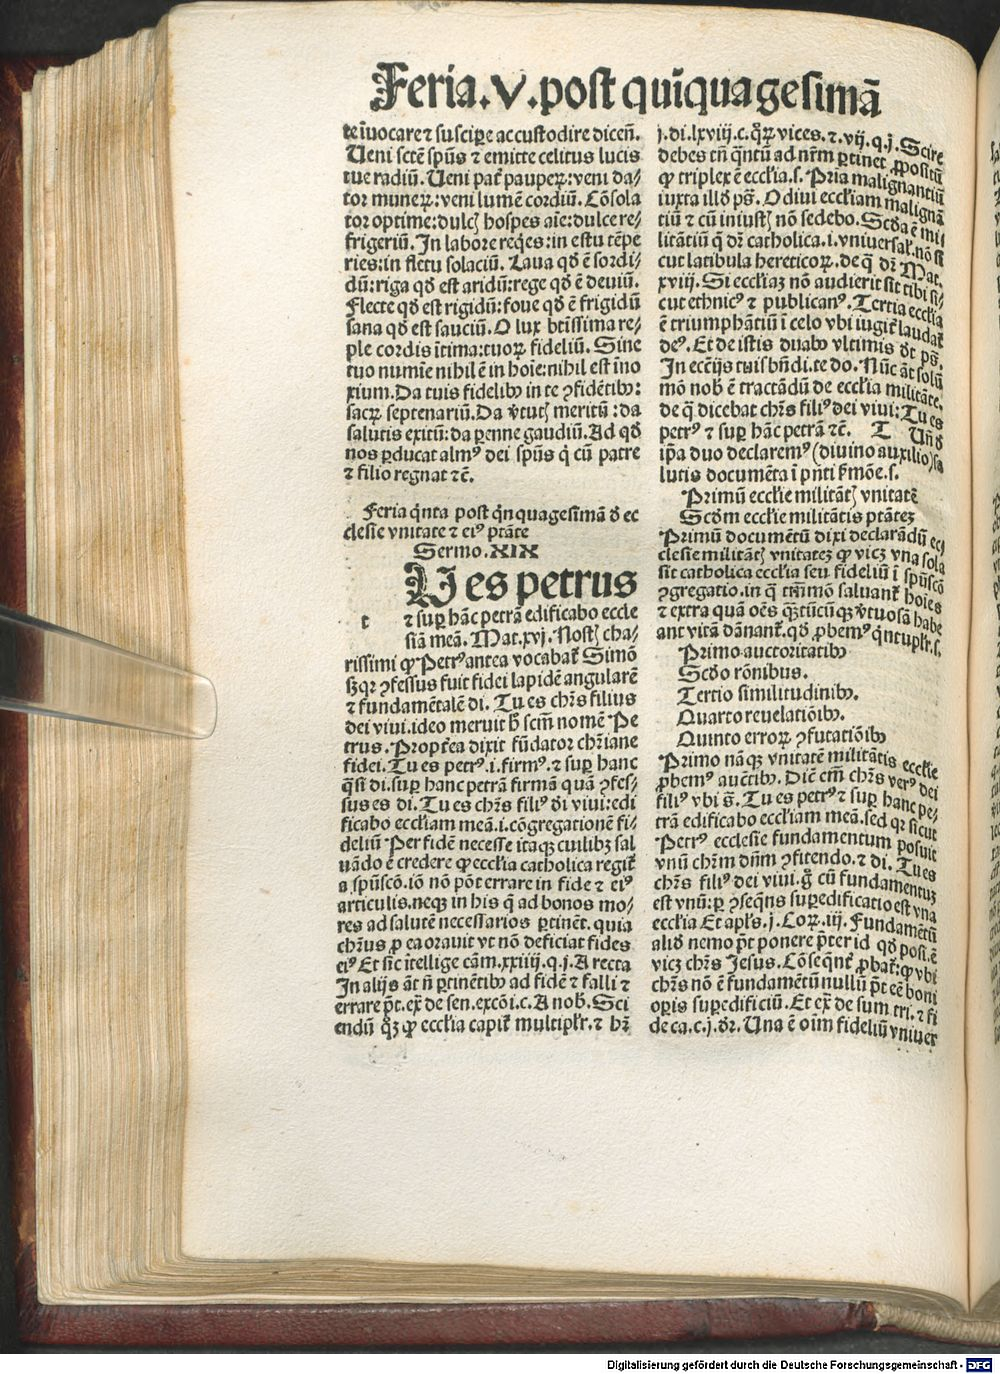 Feria.V.post quīquagesimā
te īuocare ⁊ suscipe ac custodire diceñ.
Ueni sctē spūs ⁊ emitte celitus lucis
tue radiū. Ueni pat̄ pauperꝝ: veni da⸗
tor munerꝝ: veni lumē cordiū. Cōsola
tor optime: dulcꝭ hospes aīe: dulce re⸗
frigeriū. In labore reqͥes: in estu tēpe
ries: in fletu solaciū. Laua qđ ē sordi⸗
dū: riga qđ est aridū: rege qđ ē deuiū.
Flecte qđ est rigidū: foue qđ ē frigidū
sana qđ est sauciū. O lux btīssima re⸗
ple cordis ītima: tuoꝝ fideliū. Sine
tuo numīe nihil ē in hoīe: nihil est īno
xium. Da tuis fidelibꝰ in te ꝯfidētibꝰ:
sacꝝ septenariū. Da v̄tutꝭ meritū: da
salutis exitū: da perenne gaudiū. Ad qđ
nos ꝑducat almꝰ dei spūs qͥ cū patre
⁊ filio regnat ⁊c̄.
Feria qͥnta post qͥnquagesimā đ ec
clesie vnitate ⁊ eiꝰ ptāte
Sermo.XIX
U es petrus
t ⁊ suꝑ hāc petrā edificabo eccle
siā meā. Mat.xvj. Nostꝭ cha⸗
rissimi ꝙ Petrꝰ antea vocabat̄ Simō
sꝫ qꝛ ꝯfessus fuit fidei lapidē angularē
⁊ fundamētalē di. Tu es chr̄s filius
dei viui. ideo meruit ħ scm̄ nomē Pe
trus. Propt̄ea dixit fūdator chr̄iane
fidei. Tu es petrꝰ .i. firmꝰ. ⁊ suꝑ hanc
qͣsi di. suꝑ hanc petrā firmā quā ꝯfes⸗
sus es di. Tu es chr̄s filiꝰ đi viui: edi
ficabo eccl̄iam meā .i. cōgregationē fi⸗
deliū Per fidē necesse itaqꝫ cuilibꝫ sal
uādo ē credere ꝙ eccl̄ia catholica regit̄
a spūscō. iō nō pōt errare in fide ⁊ eiꝰ
articulis. neqꝫ in his q̄ ad bonos mo⸗
res ad salutē necessarios ꝑtinēt. quia
chr̄us ꝓ ea orauit vt nō deficiat fides
eiꝰ Et sic ītellige cām.xxiiij.q.j.A recta
In alijs āt ñ ꝑtinētibꝰ ad fidē ⁊ falli ⁊
errare pōt. ex̄ de sen. excōi.c. A nob̄. Sci
endū qͥꝫ ꝙ eccl̄ia capit̄ multipl̄r. ⁊ hꝫ
j.di.lxviij.c.qͦꝝ vices. ⁊.vij.q.j. Scire
debes tñ qͣntū ad nr̄m ꝑtinet ꝓpositū
ꝙ triplex ē eccl̄ia .s. Pria malignantiū
iuxta illđ ps̄. Odiui eccl̄iam malignā
tiū ⁊ cū iniustꝭ nō sedebo. Scđa ē mi
litātiū q̄ dr̄ catholica .i. vniuersal̄. nō st̄
cut latibula hereticoꝝ. de q̄ dr̄ Mat.
xviij. Si eccl̄iaꝫ nō audierit sit tibi si⸗
cut ethnicꝰ ⁊ publicanꝰ. Tertia eccl̄ia
ē triumphātiū ī celo vbi iugit̄ laudat̄
deꝰ. Et de istis duabꝰ vltimis đt ps̄.
In eccl̄ijs tuis bn̄di. te do. Nūc āt solū
mō nob̄ ē tractādū de eccl̄ia militāte.
de q̄ dicebat chr̄s filiꝰ dei viui: Tu es
petrꝰ ⁊ suꝑ hāc petrā ⁊c̄. T Un̄ đ
ip̄a duo declaremꝰ (diuino auxilio) sa
lutis documēta ī pn̄ti ẜmōe .s.
Primū eccl̄ie militātꝭ vnitatē
Scđm eccl̄ie militātis ptāteꝫ
Primū documētū dixi declarādū ecc
clesie militātꝭ vnitateꝫ ꝙ vicꝫ vna sola
sit catholica eccl̄ia seu fideliū ī spūscō
ꝯgregatio. in q̄ tm̄mō saluant̄ hoīes
⁊ extra quā oēs qͣꝫtūcūqꝫ v̄tuosā habe
ant vitā dānant̄. qđ ꝓbemꝰ qͥntupl̄r .s.
Primo auctoritatibꝰ
Scđo rōnibus.
Tertio similitudinibꝰ.
Quarto reuelatiōibꝰ.
Quinto erroꝝ ꝯfutatiōibꝰ
Primo nāqꝫ vnitatē militātis eccl̄ie
ꝓbemꝰ auc̄tibꝰ. Dic̄ em̄ chr̄s verꝰ dei
filiꝰ vbi s̄. Tu es petrꝰ ⁊ suꝑ hanc pe⸗
trā edificabo eccl̄iam meā. sed qꝛ sicut
Petrꝰ ecclesie fundamentum posuit
vnū chr̄m dn̄m ꝯfitendo. ⁊ di. Tu es
chr̄s filiꝰ dei viui. g̊ cū fundamentuꝫ
est vnū: ꝑ ꝯseqn̄s suꝑedificatio est vna
eccl̄ia Et apl̄s.j.Coꝝ.iij. Fundamētū
aliđ nemo pōt ponere p̄ter id qđ posi. ē
vicꝫ chr̄s Jesus. Cōseqn̄t̄ ꝓbat̄: ꝙ vbi
chr̄s nō ē fundamētū nullū pōt eē boni
opis suꝑedificiū. Et ex̄ de sum tri. ⁊ fi
de ca.c.j.dr̄. Una ē oīm fideliū vniuer
Digitalisierung gefördert durch die Deutsche Forschungsgemeinschaft - DFG